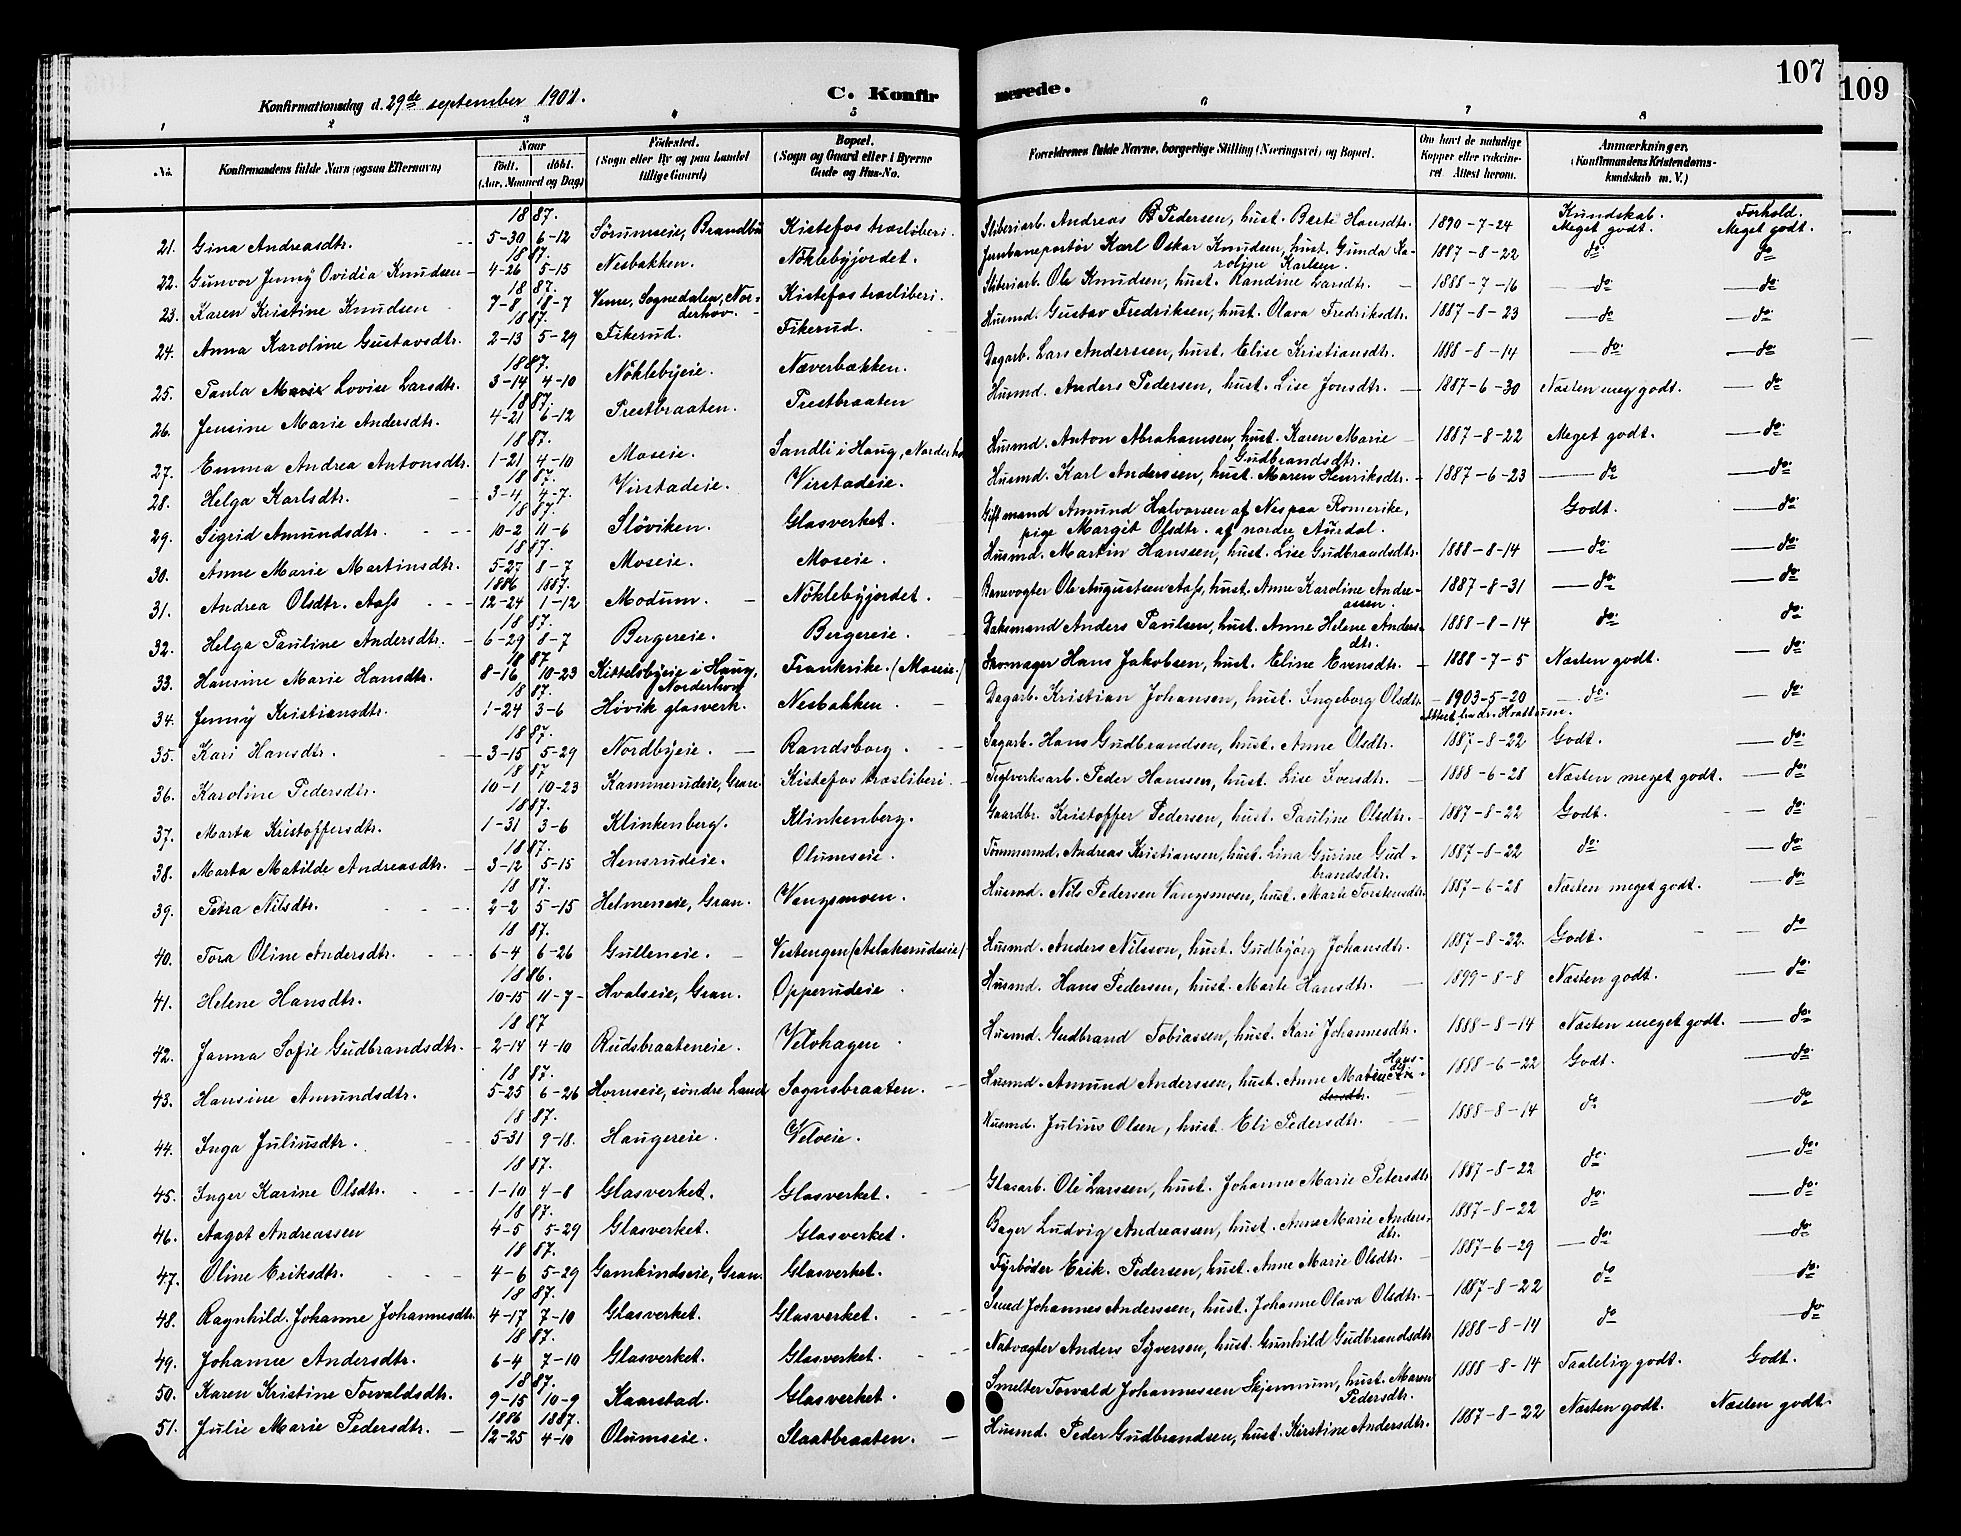 107
109
Konfirmationsdag d. 29de september 1901.
C. Konfirmerede.
1 2 3 4 5 6 7 8
No. Konfirmandens fulde Navn (ogsaa Efternavn) Naar født. døbt. (Aar, Maaned og Dag) Fødested. (Sogn eller By og paa Landet tillige Gaard) Bopæl. (Sogn og Gaard eller i Byerne Gade og Hus-No. Forældrenes fulde Navne, borgerlige Stilling (Næringsvei) og Bopæl. Om havt de naturlige Kopper eller vaccineret. Attest herom. Anmærkninger. (Konfirmandens Kristendomskundskab m. V.)
Kundskab. Forhold.
21. Gina Andreasdtr. 1887. 5-30 6-12 Sørumseie, Brandbu Kistefos træsliberi. Sliberiarb. Andreas Pedersen, hust. Berte Hansdtr. 1890-7-24 Meget godt. Meget godt.
22. Gunvor Jenny Ovidia Knudsen 1887. 4-26 5-15 Nesbakken. Nøklebyjordet. Jernbaneportør Karl Oskar Knudsen, hust. Gunda Karoline Karlsen. 1887-8-22 do do
23. Karen Kristine Knudsen 1887. 7-8 18-7 Veme, Sognedalen, Norderhov. Kistefos træsliberi. Sliberiarb. Ole Knudsen, hust. Randine Larsdtr. 1888-7-16 do do
24. Anna Karoline Gustavsdtr. 1887. 2-13 5-29 Fikerud. Fikerud. Husmd. Gustav Fredriksen, hust. Olava Fredriksdtr. 1887-8-23 do do
25. Paula Marie Lovise Larsdtr. 1887. 3-14 4-10 Nøklebyeie. Næverbakken. Dagarb. Lars Anderssen, hust. Elise Kristiansdtr. 1888-8-14 do do
26. Jensine Marie Andersdtr. 1887. 4-21 6-12 Prestbraaten. Prestbraaten Husmd. Anders Pedersen, hust. Lise Jonsdtr. 1887-6-30 Næsten meg godt. do
27. Emma Andrea Antonsdtr. 1887. 1-21 4-10 Moseie. Sandli i Haug, Norderho Husmd. Anton Abrahamsen, hust. Karen Marie Gudbrandsdtr. 1887-8-22 Meget godt. do
28. Helga Karlsdtr. 1887. 3-4 4-7. Virstadeie. Virstadeie. Husmd. Karl Anderssen, hust. Maren Henriksdtr. 1887-6-23 do do
29. Sigrid Amundsdtr. 1887. 10-2 11-6 Sløviken. Glasverket. Gift mand Amund Halvorsen af Nes paa Romerike, pige Margit Olsdtr. af nordre Aurdal. Godt. do
30. Anne Marie Martinsdtr. 1887. 5-27 8-7 Moseie. Moseie. Husmd. Martin Hanssen, hust. Lise Gudbrandsdtr. 1888-8-14 do do
31. Andrea Olsdtr. Aass 1886 1887. 12-24 1-12 Modum. Nøklebyjordet. Banevogter Ole Augustsen Aass, hust. Anne Karoline Andreassen. 1887-8-31 do do
32. Helga Pauline Andersdtr. 1887. 6-29 8-7 Bergereie. Bergereie. Daksmand Anders Paulsen, hust. Anne Helene Andersdtr. 1888-8-14 do do
33. Hansine Marie Hansdtr. 1887. 8-16 10-23 Kittelsbyeie i Haug, Norderhov Frankrike. (Moseie.) Skomager Hans Jakobsen, hust. Eline Evensdtr. 1888-7-5 Næsten godt. do
34. Jenny Kristiansdtr. 1887. 1-24 3-6 Høvik glasverk. Nesbakken. Dagarb. Kristian Johansen, hust. Ingeborg Olsdtr. 1903-5-20 do do
35. Kari Hansdtr. 1887. 3-15 5-29 Nordbyeie. Randsborg. Sagarb. Hans Gudbrandsen, hust. Anne Olsdtr. 1887-8-22 Godt. do
36. Karoline Pedersdtr. 1887 10-1 10-23 Kammerudeie, Gran. Kistefos træsliberi. Teglverksarb. Peder Hanssen, hust. Lise Iversdtr. 1888-6-28 Næsten meget godt. do
37. Marta Kristoffersdtr. 1887. 1-31 3-6 Klinkenberg. Klinkenberg. Gaardbr. Kristoffer Pedersen, hust. Pauline Olsdtr. 1887-8-22 Godt. do
38. Marta Matilde Andreasdtr. 1887. 3-12 5-15 Hensrudeie. Olumseie. Tømmermd. Andreas Kristiansen, hust. Lina Gurine Gudbrandsdtr. 1887-8-22 do do
39. Petra Nilsdtr. 1887. 2-2 5-15 Helmeneie, Gran. Vengsmoen. Husmd. Nils Pedersen Vangsmoen, hust. Marie Torstensdtr. 1887-6-28 Næsten meget godt. do
40. Tora Oline Andersdtr. 1887. 6-4 6-26 Gulleneie. Vestengen (Aslaksrudseie) Husmd. Anders Nilsson, hust. Gudbjørg Johansdtr. 1887-8-22. Godt. do
41. Helene Hansdtr. 1886. 10-15 11-7 Hvalseie, Gran. Opperudeie Husmd. Hans Pedersen, hust. Marte Hansdtr. 1899-8-8 Næsten godt. do
42. Janna Sofie Gudbrandsdtr. 1887 2-14 4-10 Rudsbraateneie. Velohagen. Husmd. Gudbrand Tobiassen, hust. Kari Johannesdtr. 1888-8-14 Næsten meget godt. do
43. Hansine Amundsdtr. 1887. 5-25 6-26 Hvmseie, søndre Land Sognsbraaten. Husmd. Amund Anderssen, hust. Anne 1888-6-22 Godt. do
44. Inga Juliusdtr. 1887. 5-31 9-18. Haugereie. Veloeie. Husmd. Julius Olsen, hust. Eli Pedersdtr. 1888-8-14 do do
45. Inger Karine Olsdtr. 1887. 1-10 4-8 Glasverket. Glasverket. Glasarb. Ole Larssen, hust. Johanne Marie Petersdtr 1887-8-22 do do
46. Aagot Andreassen 1887. 4-5 5-29 Glasverket. Glasverket. Bager Ludvig Andreassen, hust. Anne Marie Andersdtr. 1887-8-22 do do
47. Oline Eriksdtr. 1887. 4-6 5-29 Gamkindseie, Gran. Glasverket. Fyrbøder Erik Pedersen, hust. Anne Marie Olsdtr. 1887-6-29 do do
48. Ragnhild Johanne Johannesdtr. 1887. 4-17 7-10 Glasverket. Glasverket. Smed Johannes Anderssen, hust. Johanne Olava Olsdtr. 1887-8-22 do do
49. Johanne Andersdtr. 1887. 6-4 7-10 Glasverket. Glasverket. Natvagter Anders Syversen, hust. Gunhild Gudbrandsdtr 1888-8-14 do do
50. Karen Kristine Torvaldsdtr. 1887. 9-15 10-9 Kaarstad. Glasverket. Smelter Torvald Johannessen Skjennum, hust. Maren Pedersdtr. 1888-8-14 Taalelig godt. Godt.
51. Julie Marie Pedersdtr. 1886 1887. 12-25 4-10 Olumseie. Slaatbraaten. Husmd. Peder Gudbrandsen, hust. Kirstine Andersdtr. 1887-8-22 Næsten godt. Næsten godt.